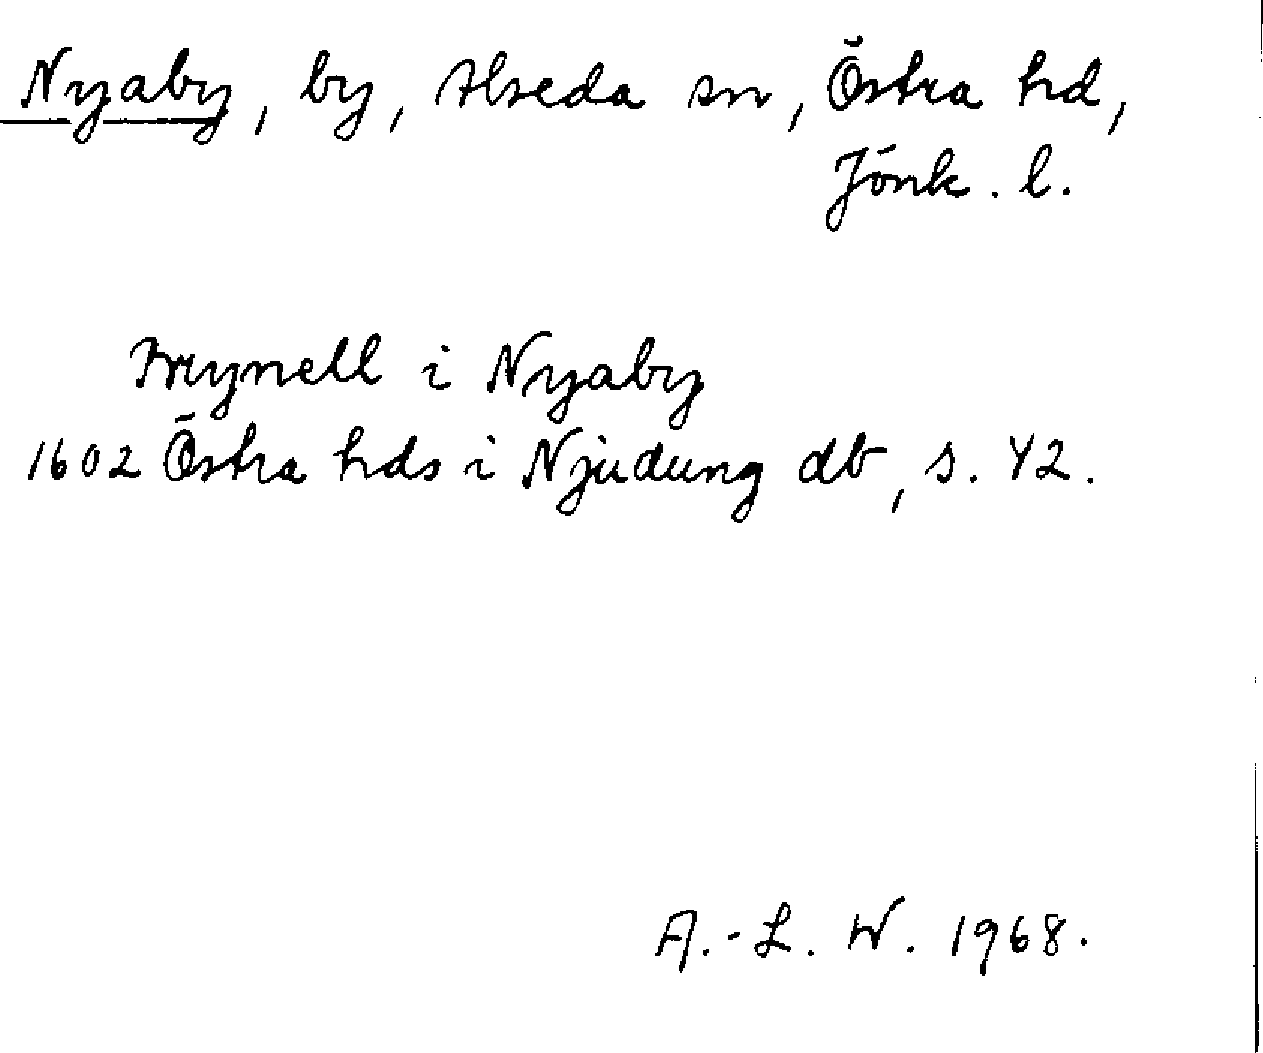 Nyaby, by, Alseda sn, Östra hd,
Jönk. l.
Brynell i Nyaby
1602 Östra hds i Njudung db, s. 42.
A.-L. W. 1968.